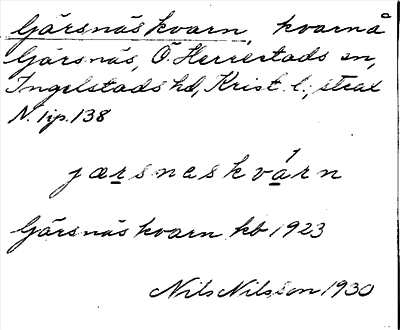 Gärsnäs kvarn, kvarn å
Gärsnäs, Ö. Herrestads sn,
Ingelstads hd, Krist. l., strax
N. lip. 138
jærsneskvárn
Gärsnäs kvarn kb 1923
Nils Nilsson 1930